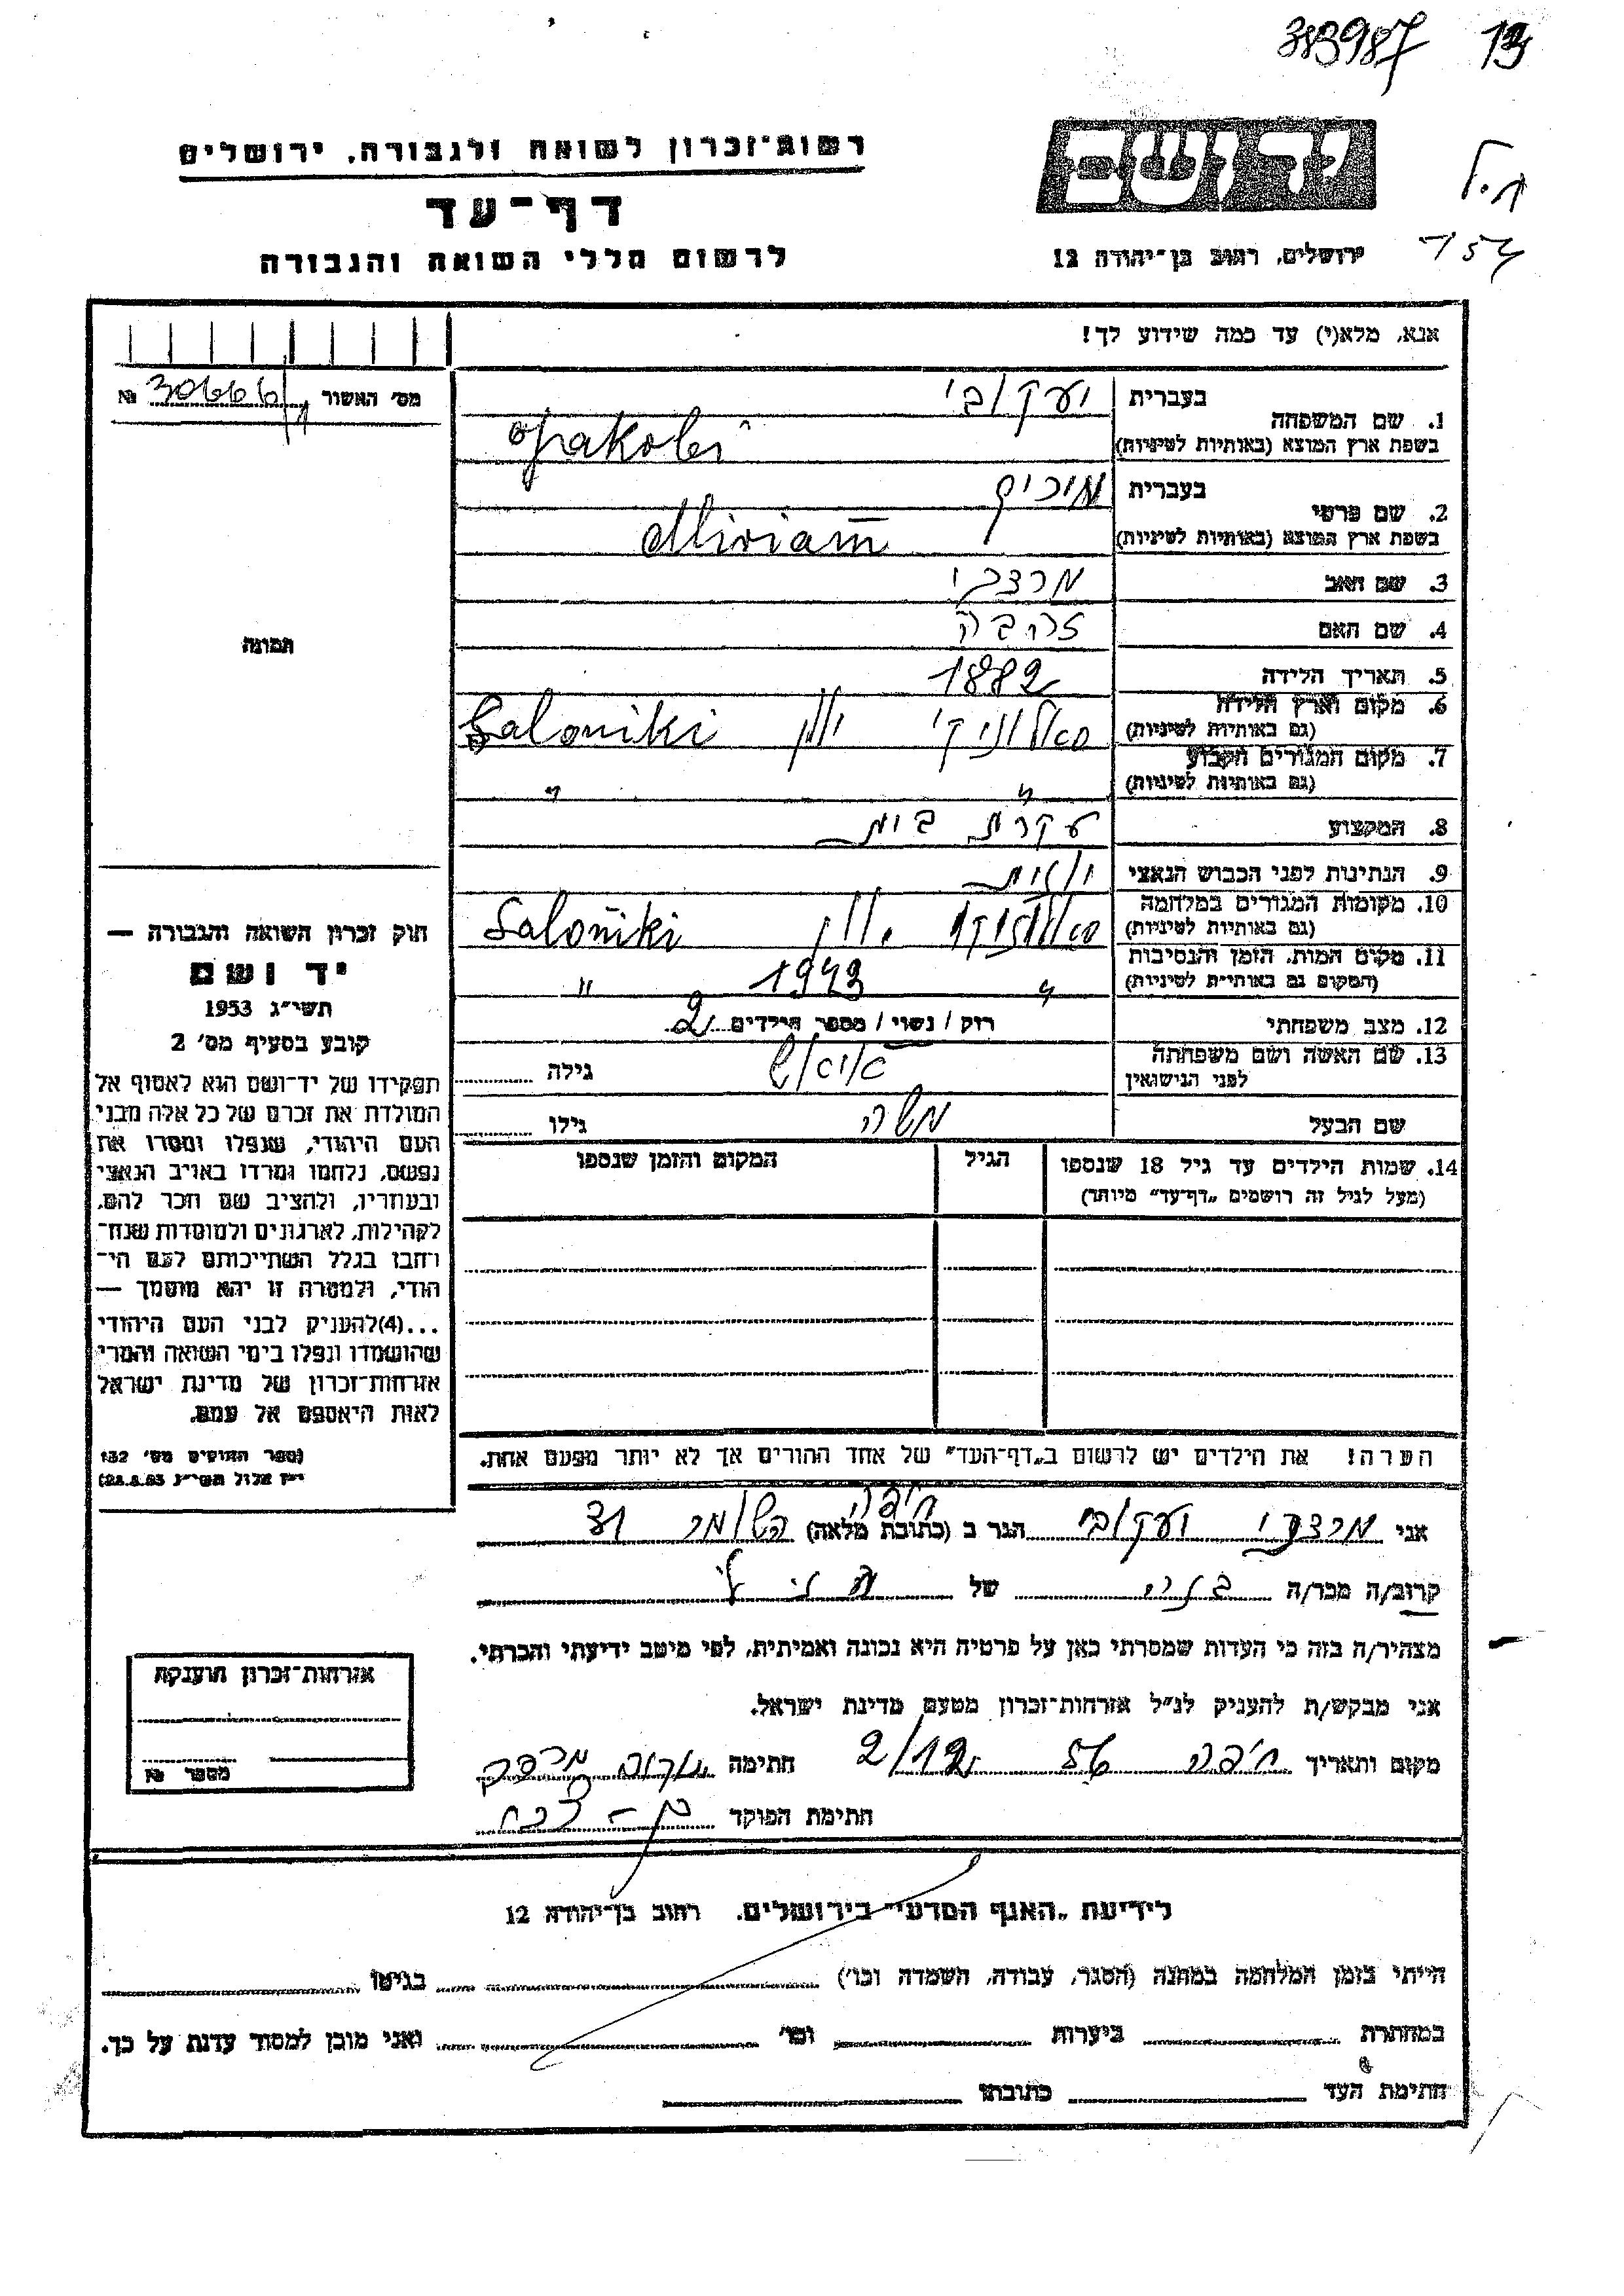 383987 13
רשות־זכרון לשואה ולגבורה, ירושלים
יד ושם
דף־עד
לרשום חללי השואה והגבורה
ירושלים, רחוב בן־יהודה 12
154
אנא, מלא(י) עד כמה שידוע לך!
מס׳ האשור 30666/1 №
1. שם המשפחה
בעברית יעקובי
בשפת ארץ המוצא (באותיות לטיניות) Jakobi
2. שם פרטי
בעברית מירים
בשפת ארץ המוצא (באותיות לטיניות) Miriam
3. שם האב מרדכי
4. שם האם זהבה
5. תאריך הלידה 1882
6. מקום וארץ הלידה סאלוניקי יוון Saloniki
(גם באותיות לטיניות)
7. מקום המגורים הקבוע " "
(גם באותיות לטיניות)
8. המקצוע עקרת בית
9. הנתינות לפני הכבוש הנאצי יונית
10. מקומות המגורים במלחמה סאלוניקי יוון Saloniki
(גם באותיות לטיניות)
11. מקום המות, הזמן והנסיבות " 1943 "
(המקום גם באותיות לטיניות)
12. מצב משפחתי רוק / נשוי / מספר הילדים 2
13. שם האשה ושם משפחתה גילה
לפני הנישואין
שם הבעל משה גילו
14. שמות הילדים עד גיל 18 שנספו הגיל המקום והזמן שנספו
(מעל לגיל זה רושמים „דף־עד” מיוחד)
תמונה
חוק זכרון השואה והגבורה —
יד ושם
תשי״ג 1953
קובע בסעיף מס׳ 2
תפקידו של יד־ושם הוא לאסוף אל
המולדת את זכרם של כל אלה מבני
העם היהודי, שנפלו ומסרו את
נפשם, נלחמו ומרדו באויב הנאצי
ובעוזריו, ולהציב שם וזכר להם,
לקהילות, לארגונים ולמוסדות שנח־
רחבו בגלל השתייכותם לעם הי־
הודי, ולמטרה זו יהא מוסמך —
...(4)להעניק לבני העם היהודי
שהושמדו ונפלו בימי השואה והמרי
אזרחות־זכרון של מדינת ישראל
לאות היאספם אל עמם.
(ספר החוקים מס׳ 132
י״ז אלול תשי״ג 28.8.53)
הערה! את הילדים יש לרשום ב„דף־העד” של אחד ההורים אך לא יותר מפעם אחת.
אני מרדכי יעקובי הגר ב (כתובת מלאה) חיפה השומר
קרוב/ה מכר/ה של
מצהיר/ה בזה כי העדות שמסרתי כאן על פרטיה היא נכונה ואמיתית, לפי מיטב ידיעתי והכרתי.
אני מבקש/ת להעניק לנ״ל אזרחות־זכרון מטעם מדינת ישראל.
מקום ותאריך חיפה 56 2/12 חתימה
חתימת הפוקד
אזרחות־זכרון הוענקה
מספר №
לידיעת „האגף המדעי” בירושלים, רחוב בן־יהודה 12
הייתי בזמן המלחמה במחנה (הסגר, עבודה, השמדה וכו׳) בגיטו
במחתרת ביערות וכו׳ ואני מוכן למסור עדות על כך.
חתימת העד כתובתו